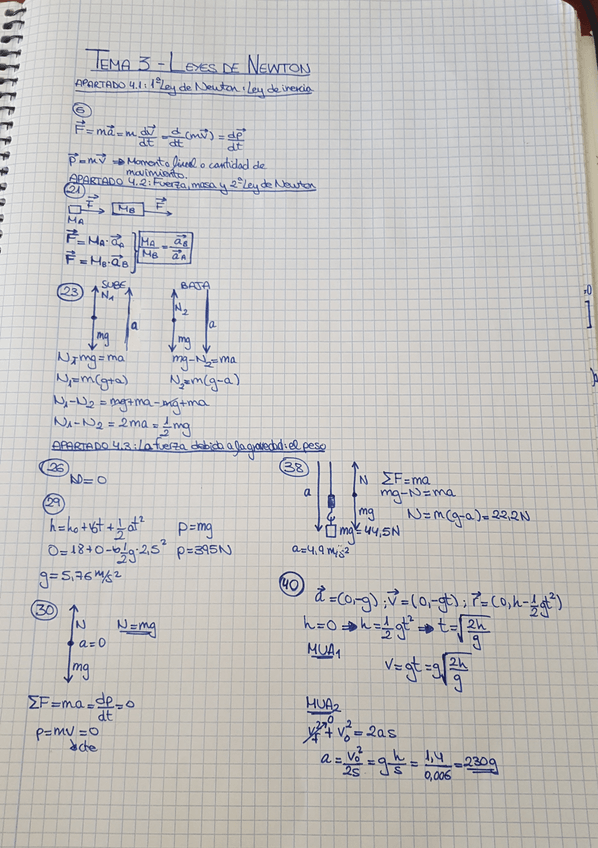 TEMA 3 - LEYES DE NEWTON
APARTADO 4.1: 1ª Ley de Newton: Ley de inercia
6
F⃗ = ma⃗ = m dv⃗/dt = d/dt (mv⃗) = dp⃗/dt
p⃗ = mv⃗ ⇒ Momento lineal o cantidad de
movimiento.
APARTADO 4.2: Fuerza, masa y 2ª Ley de Newton
21
F⃗ MB F⃗
MA
F⃗ = MA · a⃗A
F⃗ = MB · a⃗B
MA/MB = a⃗B/a⃗A
23
SUBE BAJA
N1 a N2 a
mg mg
N1-mg=ma mg-N2=ma
N1=m(g+a) N2=m(g-a)
N1-N2 = mg+ma-mg+ma
N1-N2 = 2ma = 1/2 mg
APARTADO 4.3: La fuerza debida a la gravedad: el peso
26
N=0
29
h=h0+v0t+1/2at²
p=mg
p=395N
g=5,76 m/s²
30
N N=mg
a=0
mg
ΣF=ma=dp/dt=0
p=mv=0
cte
38
a N ΣF=ma
mg-N=ma
mg N=m(g-a)=22,2N
mg=44,5N
a=4,9 m/s²
40
a⃗=(0,-g); v⃗=(0,-gt); r⃗=(0,h-1/2gt²)
h=0 ⇒ h=1/2gt² ⇒ t=√(2h/g)
MUA1
v=gt=g√(2h/g)
MUA2
vf²+v0²=2as
0
a=v0²/2s=g h/s=1,4/0,006=230g